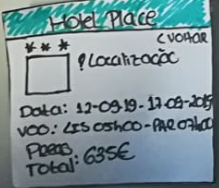 Hotel Place
< VOLTAR
* * *
Localização
Data: 12-09-19 - 17-09-2019
VOO: LIS 05h00 - PAR 07h00
Total: 635€